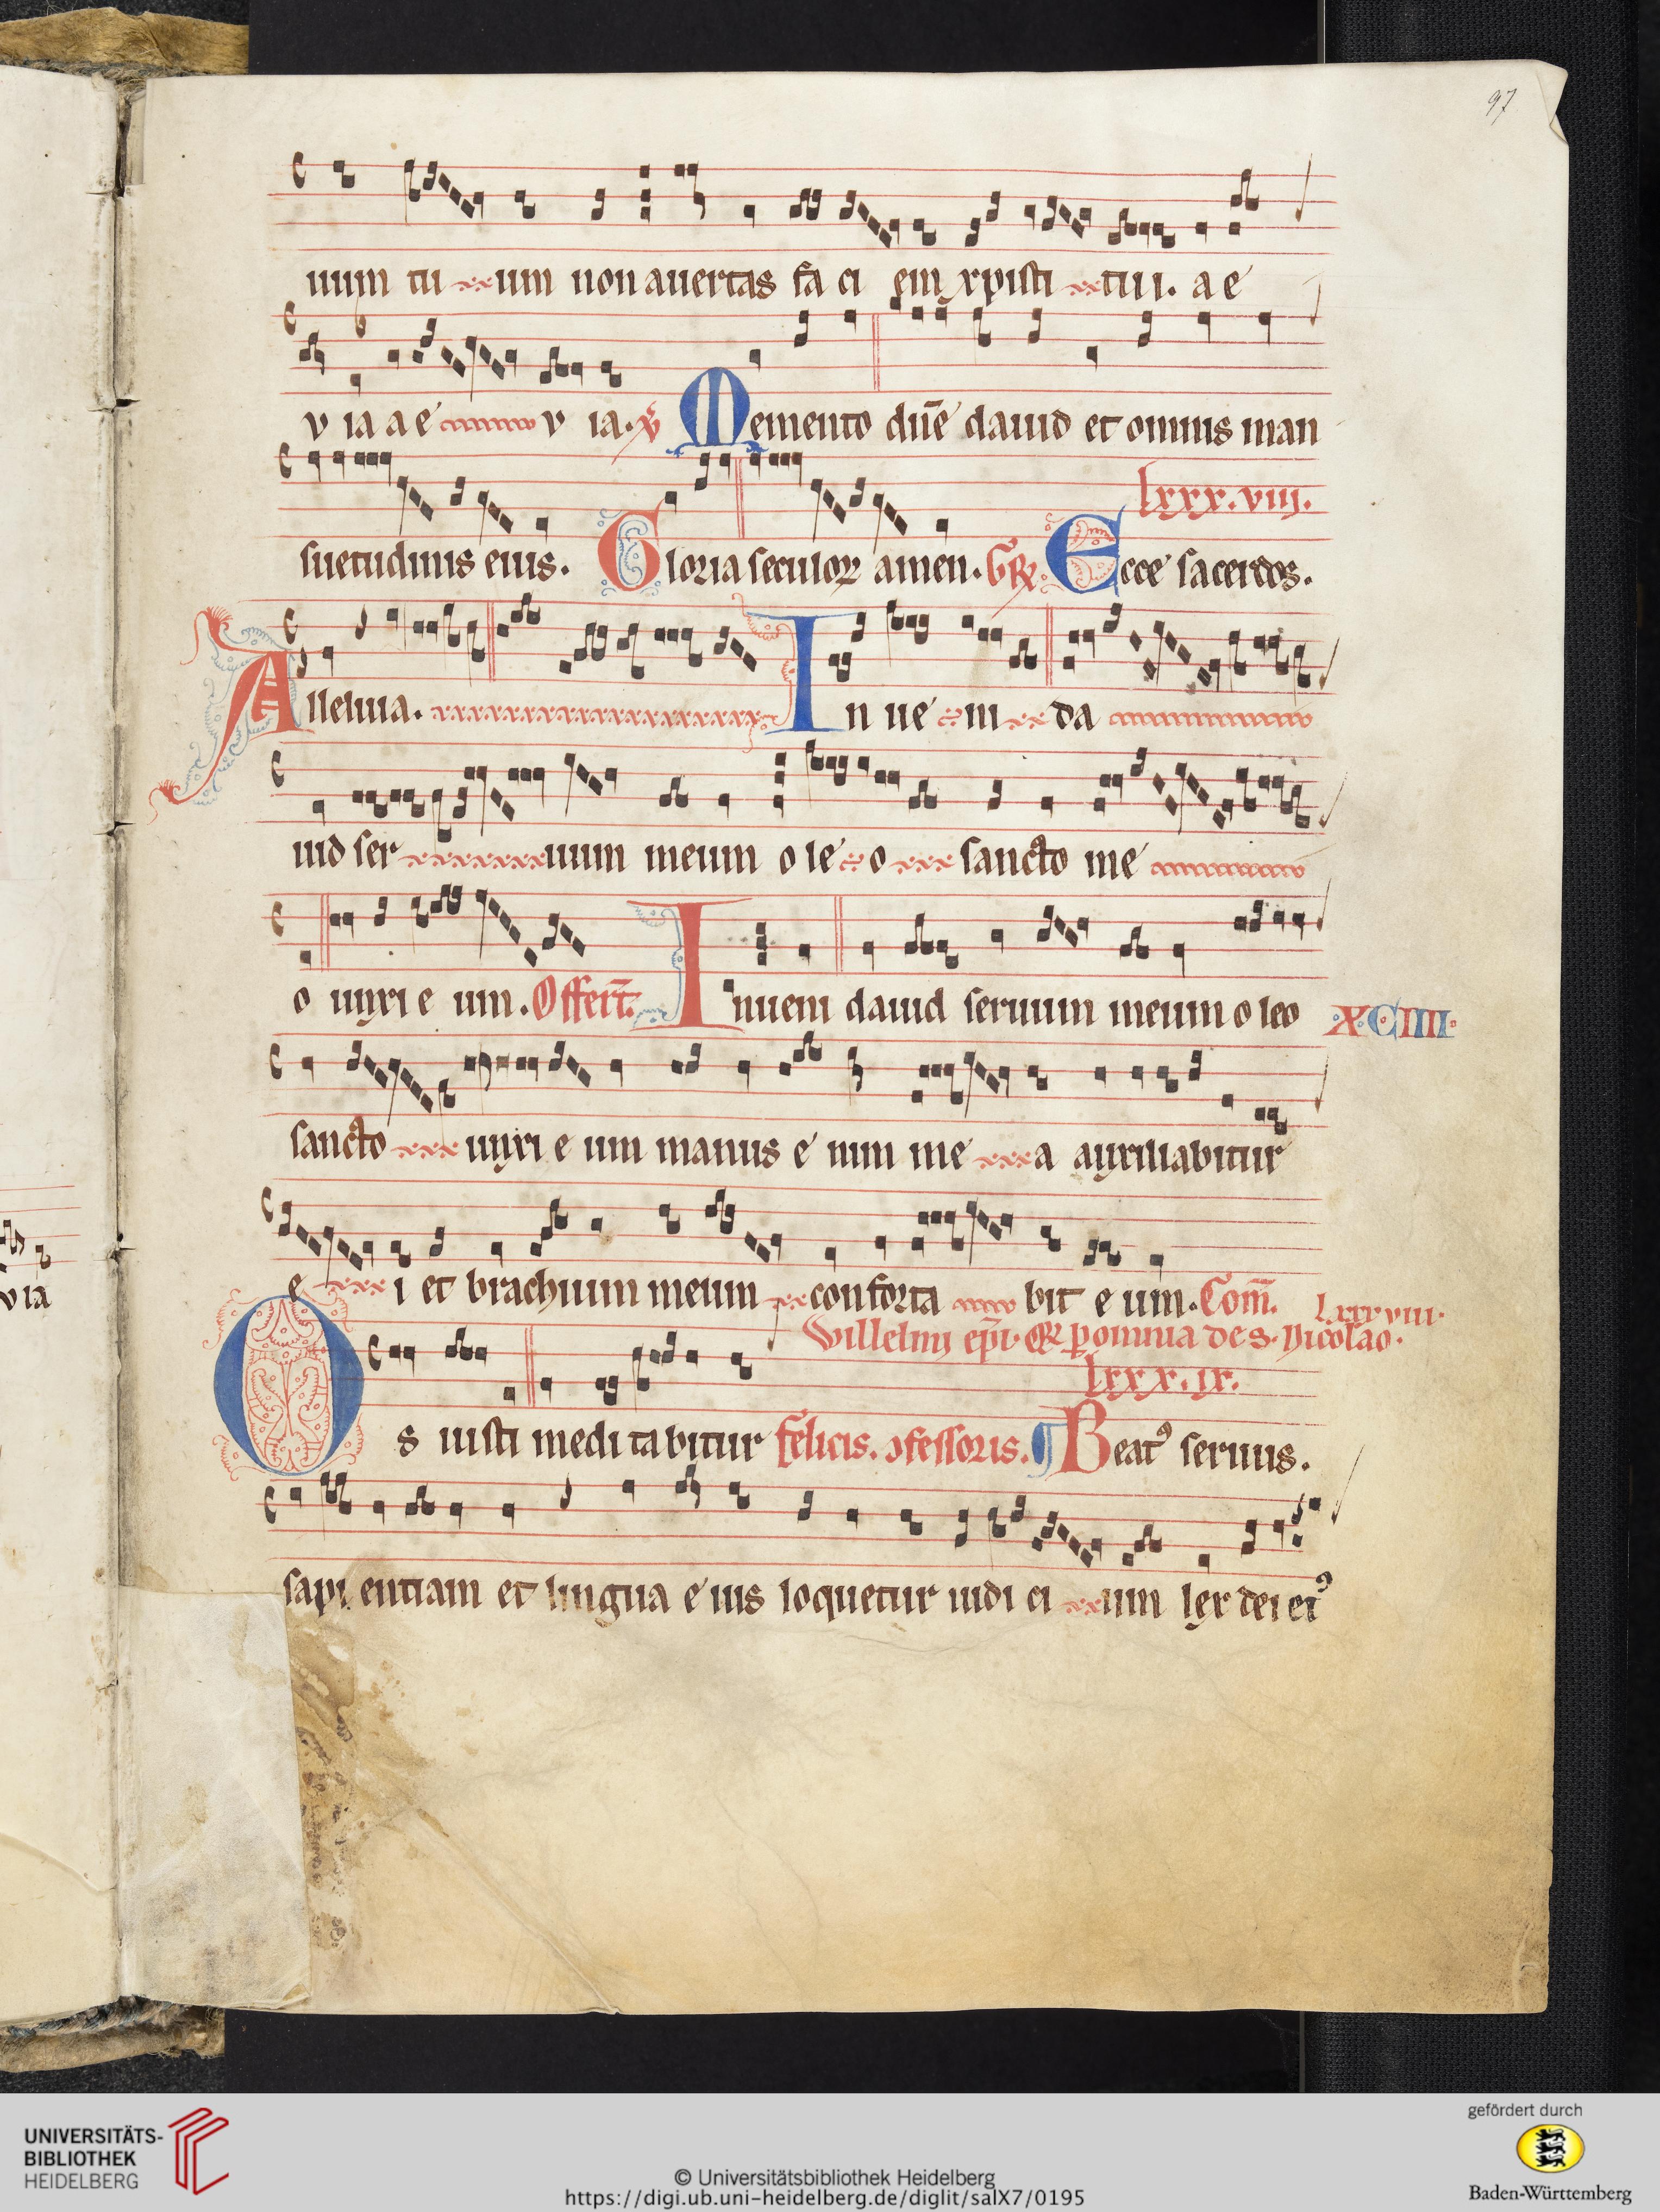 97
uum tu um non auertas fa ci em xpisti tui. a e
v ia a e v ia. ℣ Memento dn̄e dauid et omnis man
suetudinis eius. Gloria seculoꝝ amen. Gꝶ. Ecce sacerdos.
lxxx.viij.
Alleluia. In ue ni da
uid ser uum meum o le o sancto me
o unxi e um. Offert̄. Inueni dauid seruum meum o leo
XCIIII
sancto unxi e um manus e nim me a auxiliabitur
e i et brachium meum conforta bit e um. Com̄.
lxxxviii.
Willelmi ep̄i. Oꝝ ꝑ omnia de s. Nicolao.
lxxx.ix.
Os iusti medi tabitur felicis. ↄfessoris. Beatꝰ seruus.
sapi entiam et lingua e ius loquetur iudi ci um lex dei eiꝰ
via
UNIVERSITÄTS-
BIBLIOTHEK
HEIDELBERG
© Universitätsbibliothek Heidelberg
https://digi.ub.uni-heidelberg.de/diglit/salX7/0195
gefördert durch
Baden-Württemberg